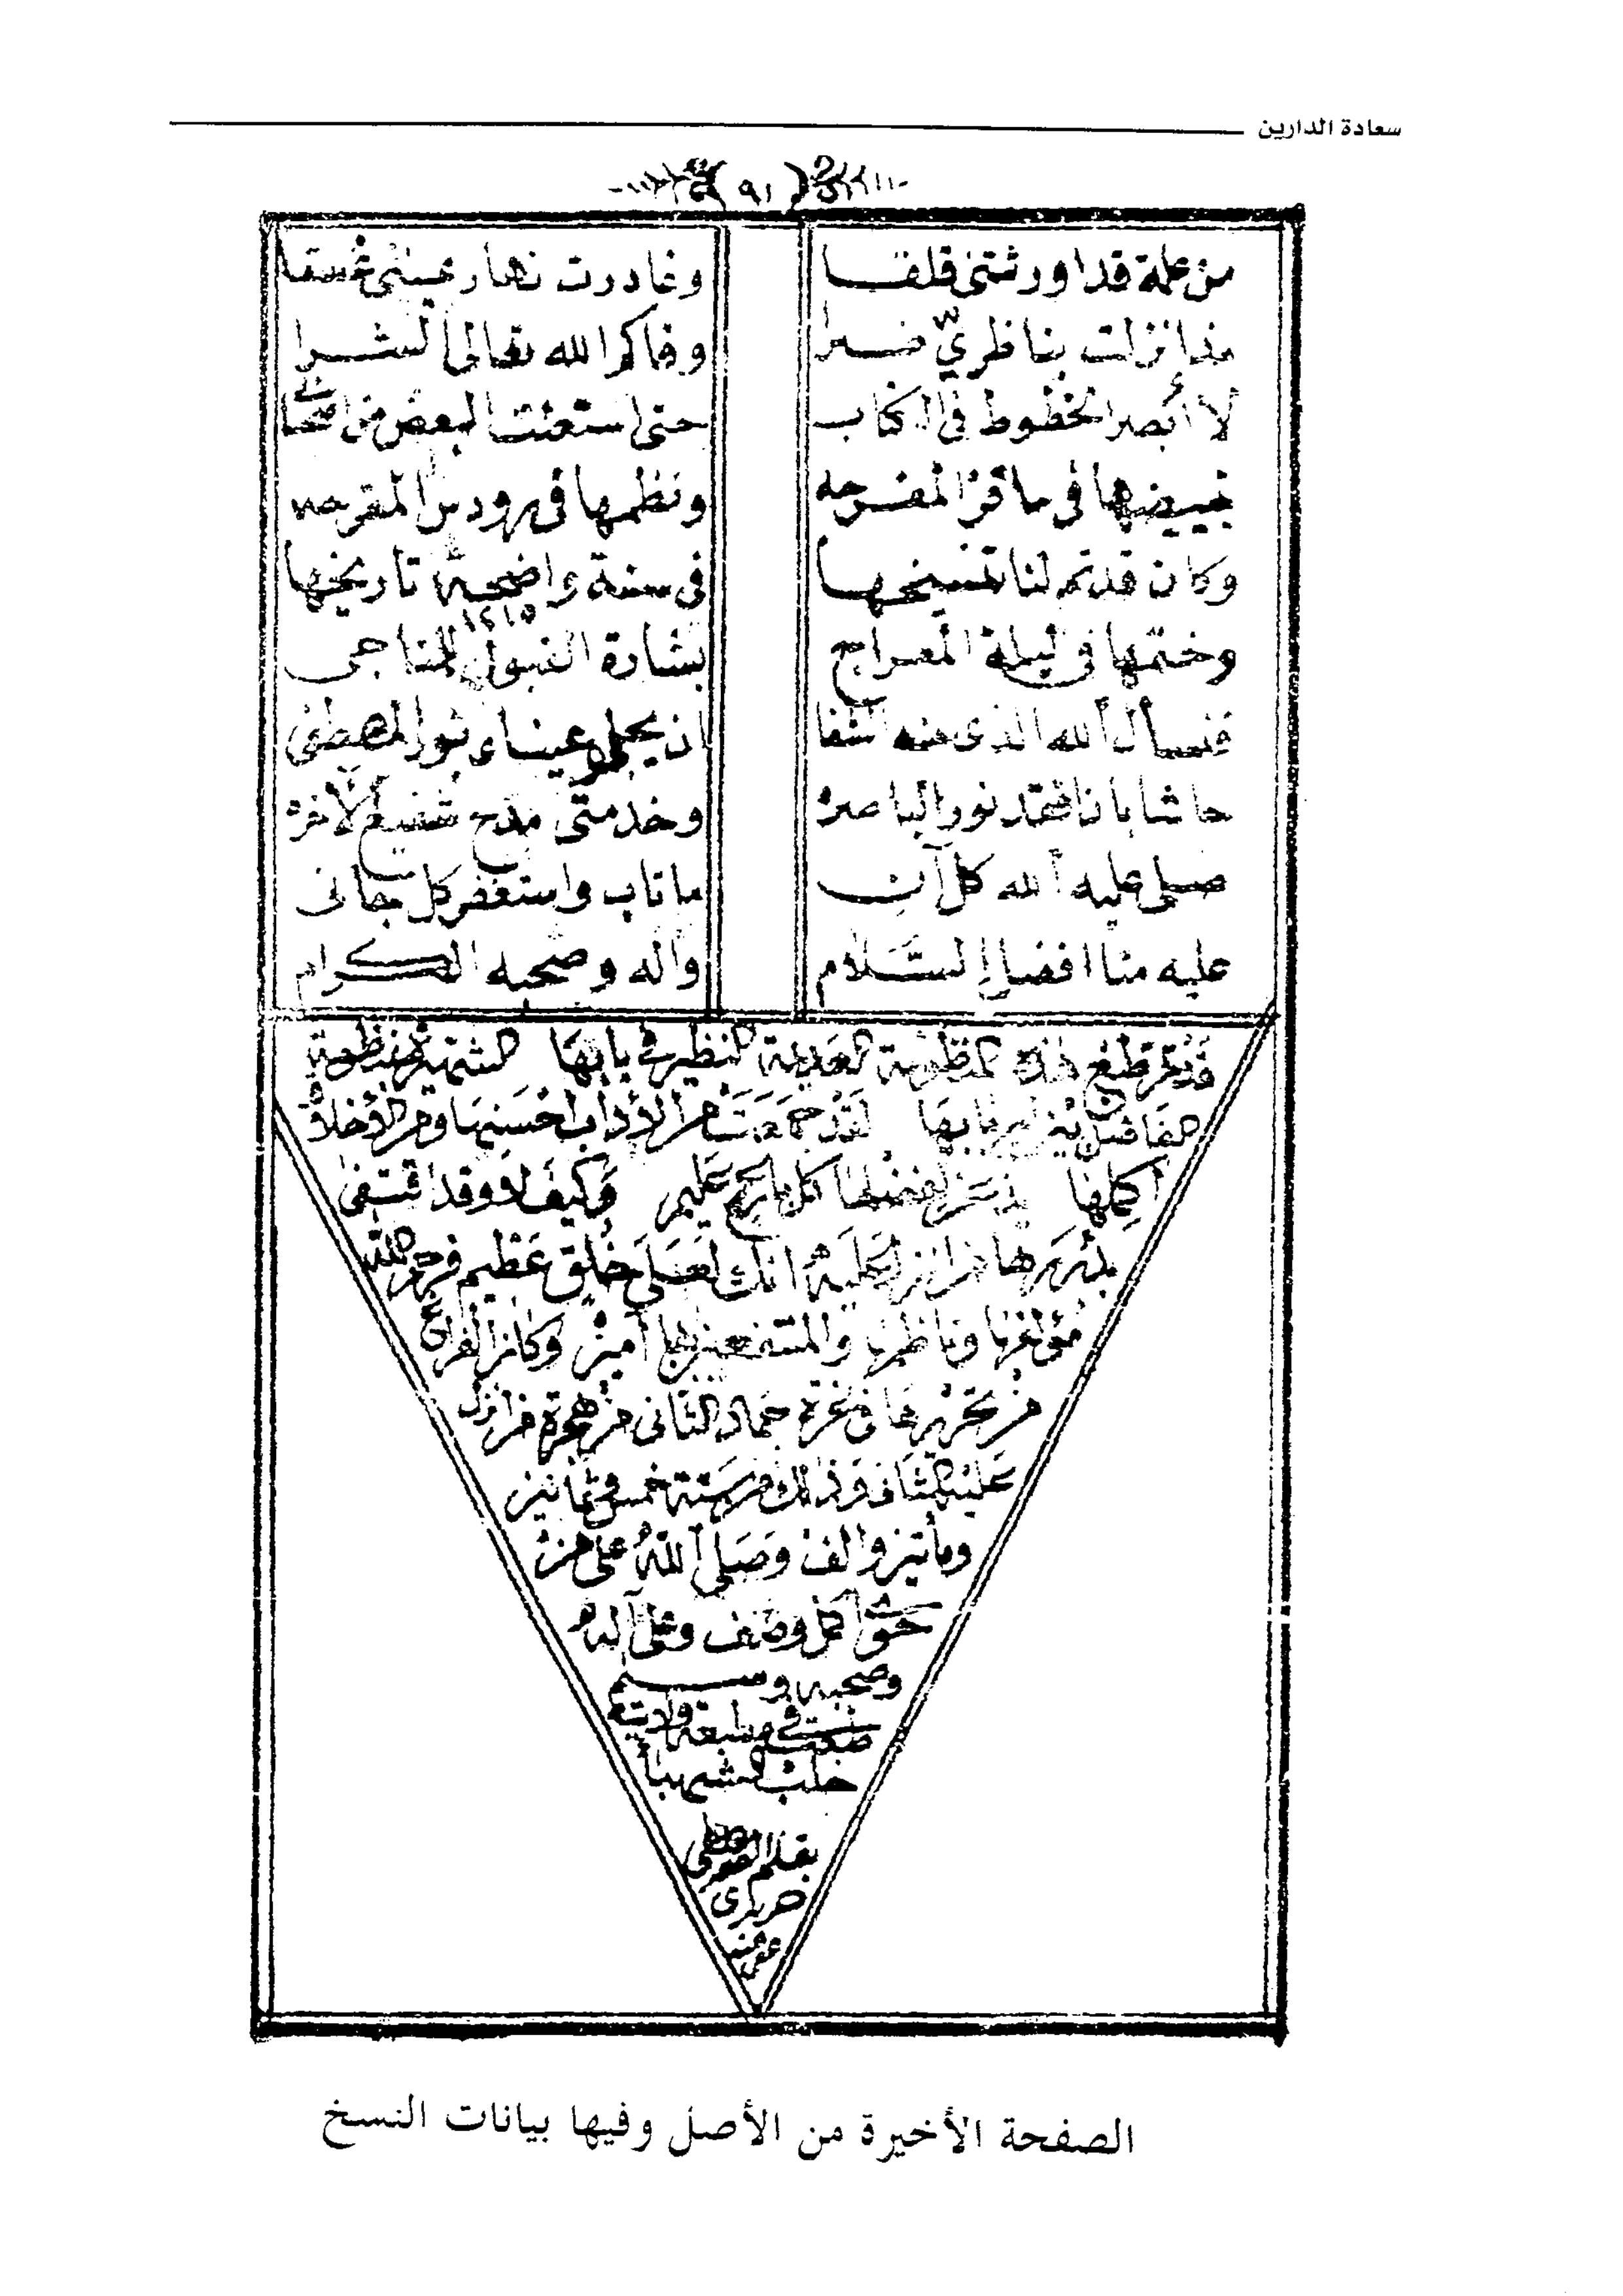 سعادة الدارين
(٩١)
من علة قد اورثتني قلقا وغادرت نهار عيني غسقا
مذ انزلت بناظريّ ضرا وقاكم الله تعالى الشرا
لا أبصر الخطوط في الكتاب حتى استعنت البعض من اصحابي
تبييضها في ما قز المفرحه ونظمها في رودس المفرحه
وكان قد تم لنا تنسيخها في سنة واضحة تاريخها
١٢١٥
وختمها في ليلة المعراج بشارة القبول للمناجي
فنسأل الله الذي منه الشفا ان يجلو عيناء بنور المصطفى
حاشا بان افقد نور الباصره وخدمتي مدح شفيع الآخره
صلى عليه الله كل آن ما تاب واستغفر كل جاني
عليه منا افضل السَّلام وآله وصحبه الكرام
قد تم طبع هذه المنظومة العديمة النظير في بابها الشهيرة
لقد جمعت من الآداب احسنها ومن الأخلاق
أكملها كل عليم وكيف لا وقد اقتفى
انك لعلى خلق عظيم فرحم الله
مؤلفها وناظرها والمنتفعين بها آمين وكان الفراغ
من تحريرها في غرة جماد الثاني من هجرة من انزل
عليه المثاني وذلك من سنة خمس وثمانين
ومأتين والف وصلى الله على من
حوى كل وصف وعلى آله
وصحبه وسلم
طبعت في مطبعة ولاية
حلب الشهباء
بقلم مصطفى
حريري
عفي عنه
الصفحة الأخيرة من الأصل وفيها بيانات النسخ